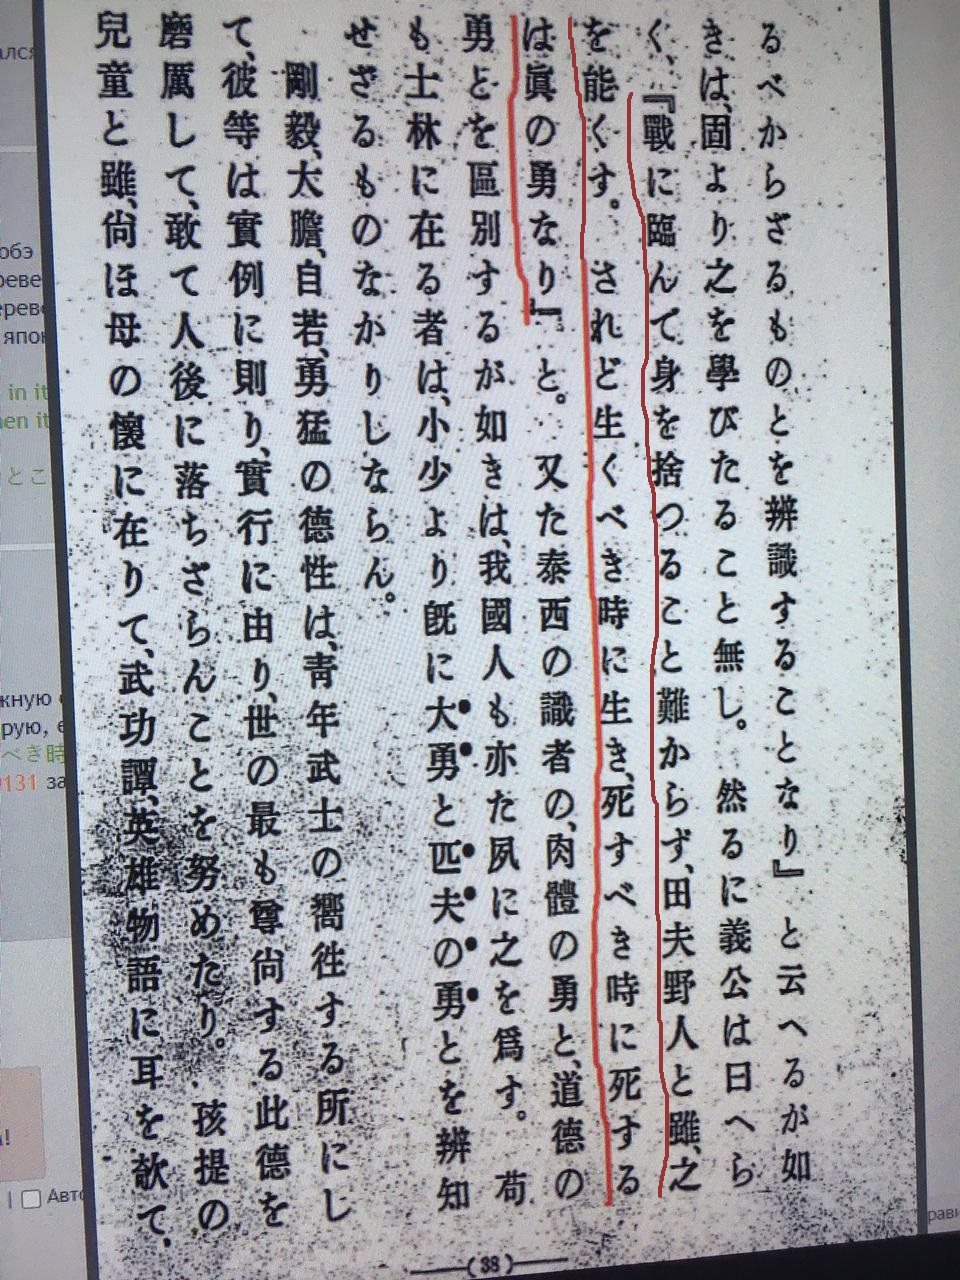 るべからざるものとを辨識することなり』と云へるが如
きは、固より之を學びたること無し。然るに義公は曰へら
く、『戰に臨んで身を捨つること難からず、田夫野人と雖、之
を能くす。されど生くべき時に生き、死すべき時に死する
は眞の勇なり』と。又た泰西の識者の、肉體の勇と、道德の
勇とを區別するが如きは、我國人も亦た夙に之を爲す。苟
も士林に在る者は、小少より既に大勇と匹夫の勇とを辨知
せざるものなかりしならん。
剛毅、大膽、自若、勇猛の德性は、靑年武士の嚮徃する所にし
て、彼等は實例に則り、實行に由り、世の最も尊尙する此德を
磨厲して、敢て人後に落ちざらんことを努めたり。孩提の
兒童と雖、尙ほ母の懷に在りて、武功譚、英雄物語に耳を欹て、
(38)
ался
обэ
реве
япон
in it
en it
とこ
жную
рую,
べき時
9131 за
Авто